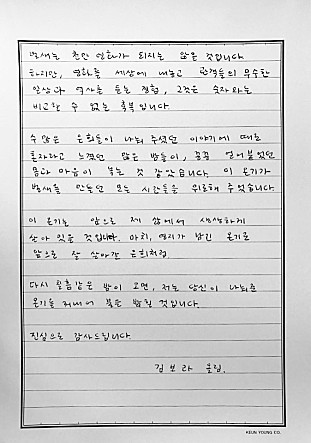 벌새는 천만 영화가 되지는 않은 것입니다
하지만, 영화를 세상에 내놓고 관객들의 무수한
일상과 역사를 듣는 경험, 그것은 숫자와는
비교할 수 없는 축복입니다.
수많은 은희들이 나눠 주셨던 이야기에 때로
혼자라고 느꼈던 많은 밤들이, 꽁꽁 얼어붙었던
몸과 마음이 녹는 것 같았습니다. 이 온기가
벌새를 만들던 모든 시간들을 위로해 주었습니다
이 온기는 앞으로 제 삶에서 생생하게
살아 있을 것입니다. 마치, 영지가 남긴 온기로
앞으로 잘 살아간 은희처럼.
다시 칠흑같은 밤이 오면, 저는 당신이 나눠준
온기를 꺼내어 불을 밝힐 것입니다.
진심으로 감사드립니다.
김보라 올림.
KEUN YOUNG CO.